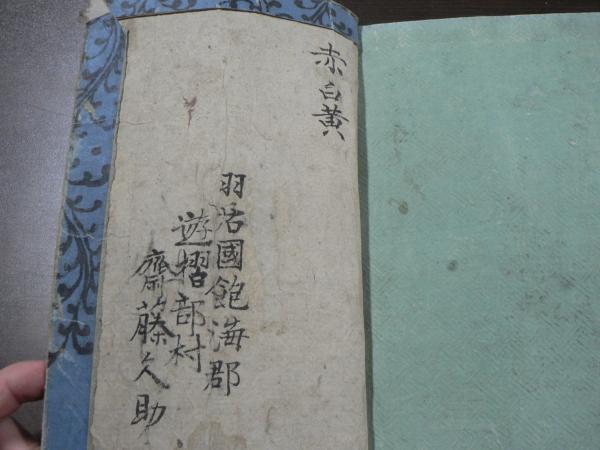 赤白黄
羽后國飽海郡
遊摺部村
齋藤久助